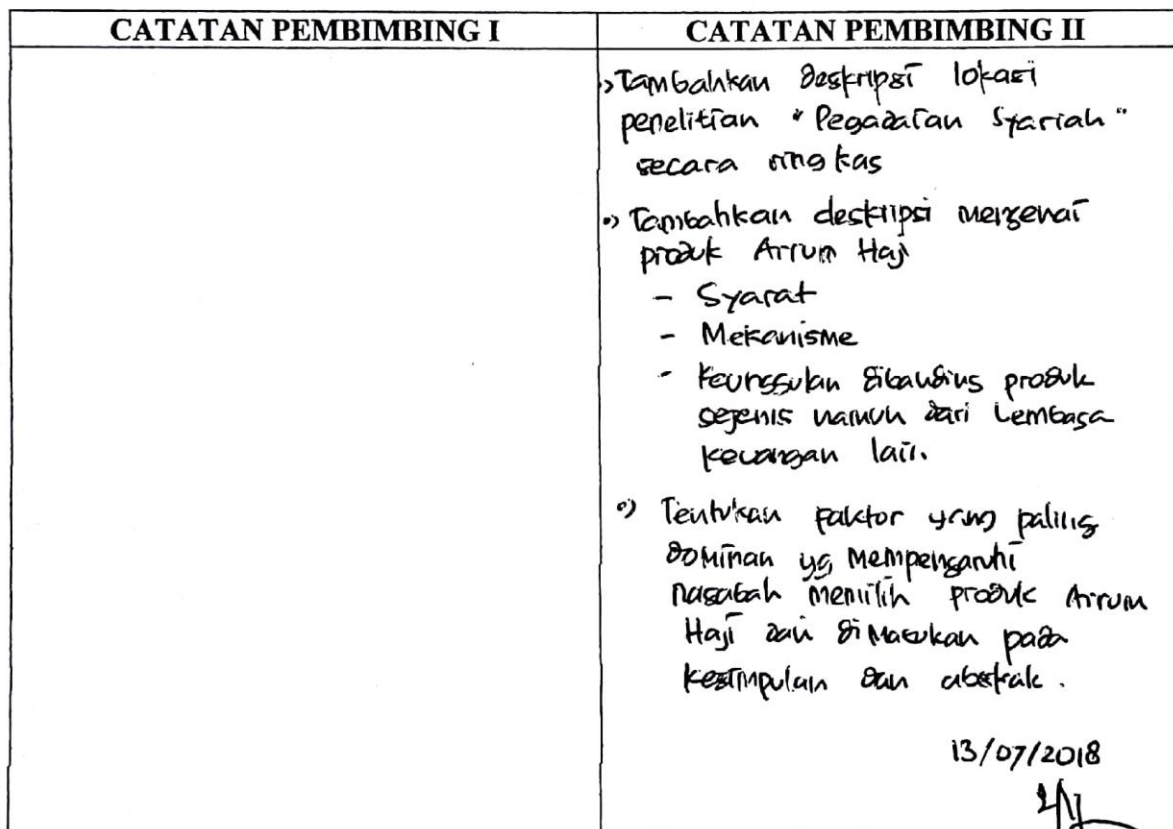 CATATAN PEMBIMBING I
CATATAN PEMBIMBING II
•) Tambahkan deskripsi lokasi
penelitian "Pegadaian Syariah"
secara ringkas
•) Tambahkan deskripsi mengenai
produk Arrum Haji
- Syarat
- Mekanisme
- Keunggulan dibanding produk
sejenis namun dari Lembaga
keuangan lain.
•) Tentukan faktor yang paling
dominan yg mempengaruhi
nasabah memilih produk Arrum
Haji dan dimasukan pada
kesimpulan dan abstrak.
13/07/2018